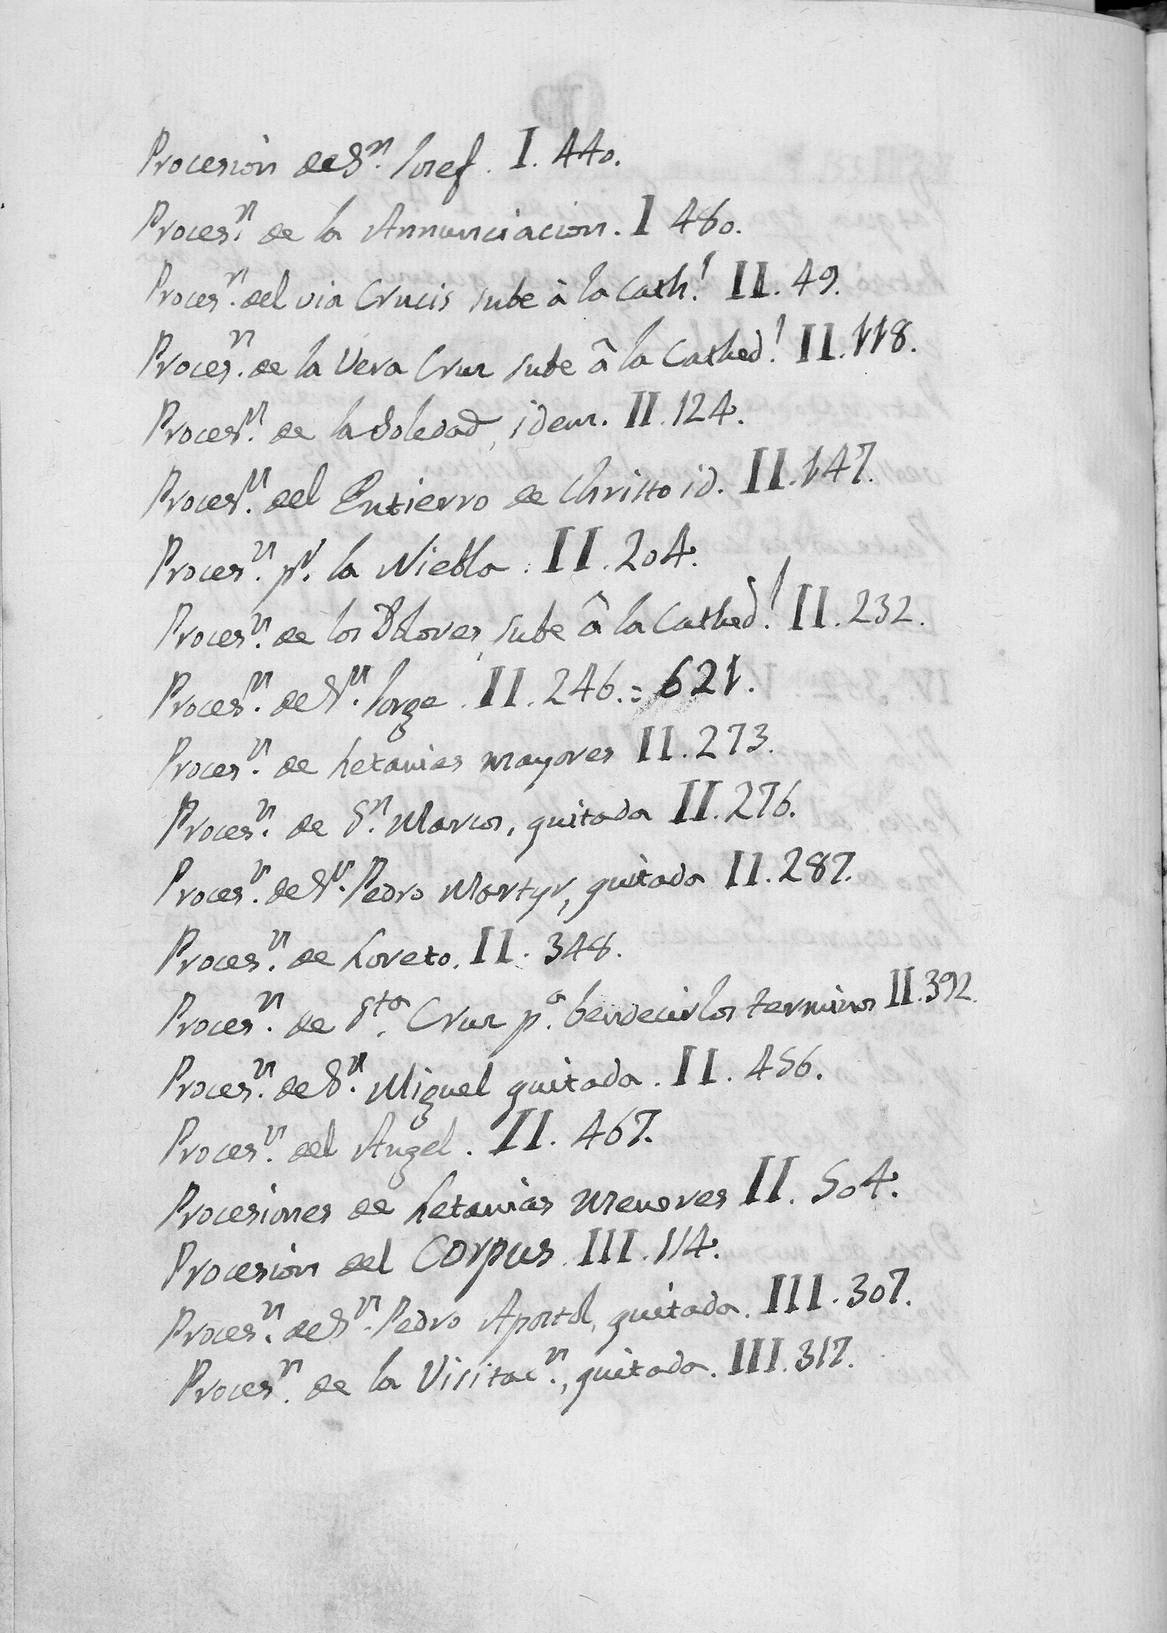 Procesion de Sn. Josef. I. 440.
Proces.n de la Annunciacion. I 480.
Proces.n del via Crucis sube à la Cath.l II. 49.
Proces.n de la Vera Cruz sube â la Cathed.l II. 118.
Proces.n de la Soledad, idem. II. 124.
Proces.n del Entierro de Christo id. II. 147.
Proces.n pr. la Niebla. II. 204.
Proces.n de los Dolores, sube â la Cathed.l II. 232.
Proces.n de Sn. Jorge. II. 246. = 621.
Proces.n de Letanias mayores II. 273.
Proces.n de Sn. Marcos, quitada II. 276.
Proces.n de Sn. Pedro Martyr, quitada II. 287.
Proces.n de Loreto. II. 348.
Proces.n de Sta. Cruz pa. bendecir los terminos II. 392.
Proces.n de Sn. Miguel quitada. II. 456.
Proces.n del Angel. II. 467.
Procesiones de Letanias Menores II. 504.
Procesion del Corpus. III. 114.
Proces.n de Sn. Pedro Apostol, quitada. III. 307.
Proces.n de la Visitac.n, quitada. III. 317.